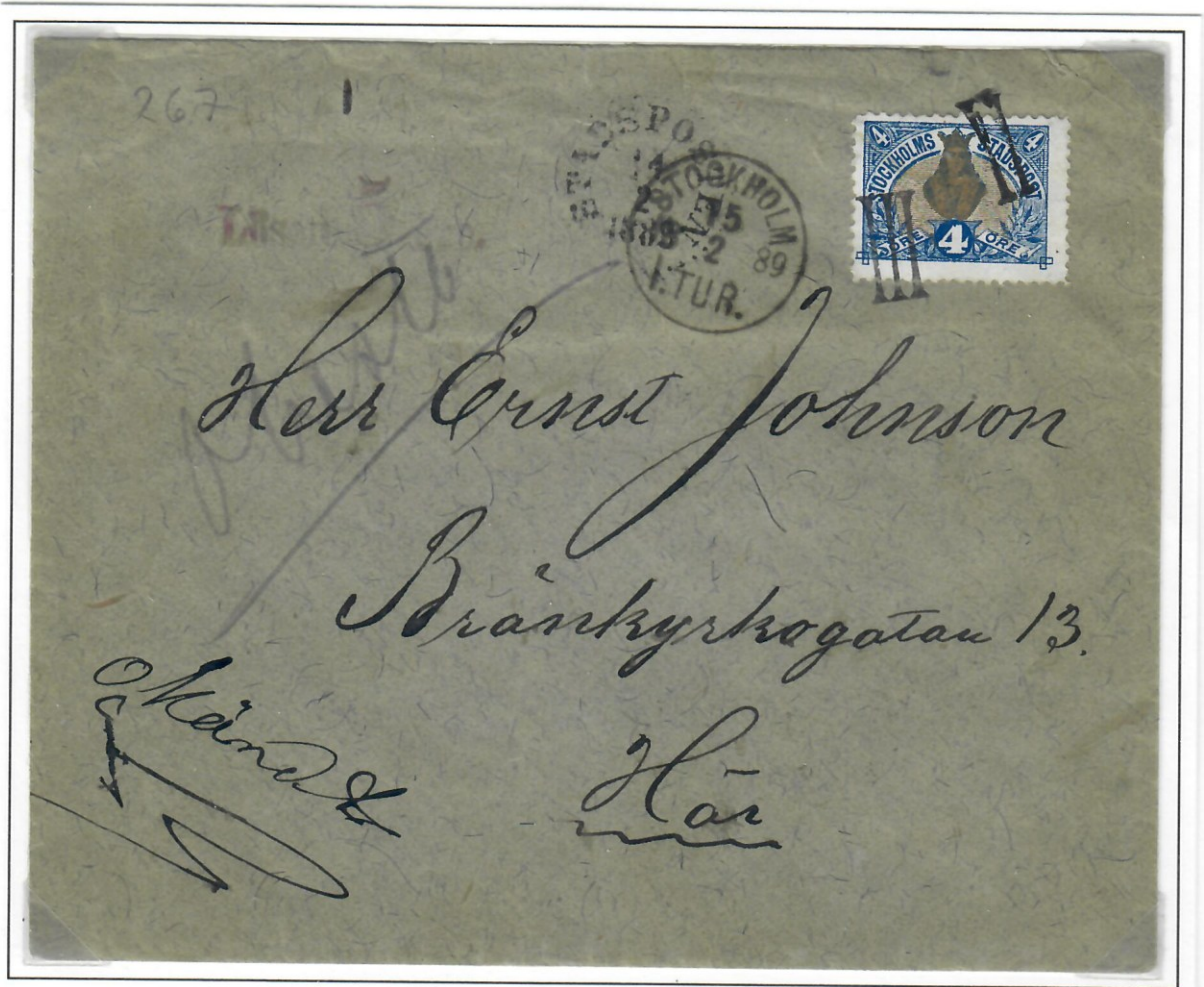 267
STADSPOST
14
2
1889
STOCKHOLM
15
2
89
1. TUR.
4 4
STOCKHOLMS STADSPOST
ÖRE 4 ÖRE
III
Herr Ernst Johnson
Bränkyrkogatan 13.
Här
okändt